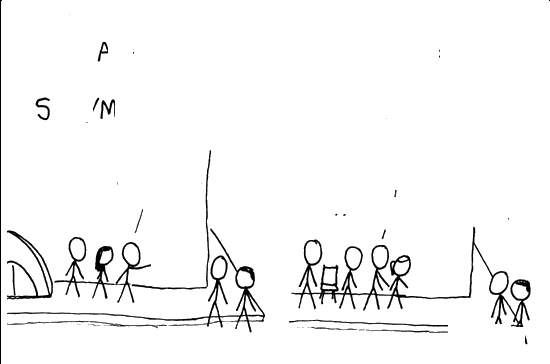 A
S 'M